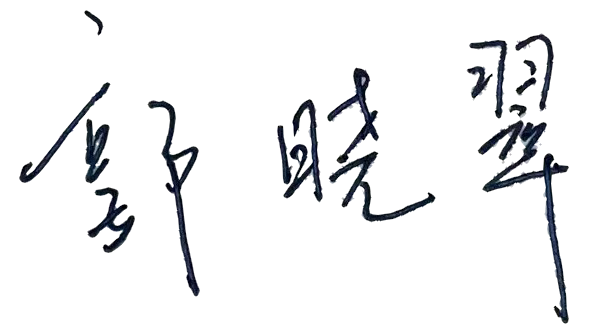 郭晓翠